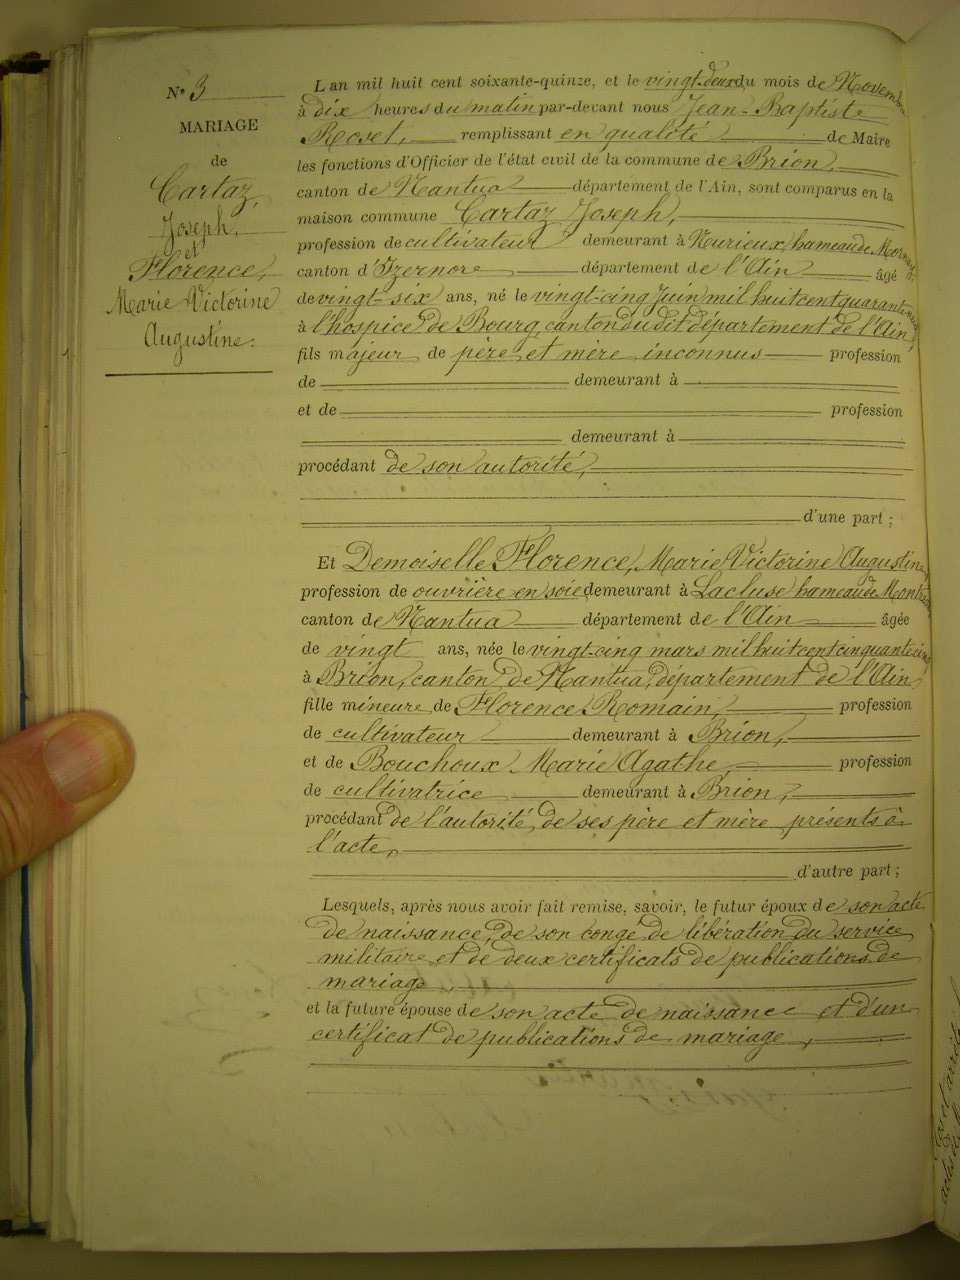 N° 3
MARIAGE
de
Cartaz,
Joseph,
et
Florence,
Marie Victorine
Augustine.
L'an mil huit cent soixante-quinze, et le vingt-deux du mois de Novembre
à dix heures du matin par-devant nous Jean-Baptiste
Roset, remplissant en qualité de Maire
les fonctions d'Officier de l'état civil de la commune de Brion,
canton de Nantua département de l'Ain, sont comparus en la
maison commune Cartaz Joseph,
profession de cultivateur demeurant à Nurieux hameau de Mornay,
canton d'Izernore département de l'Ain âgé
de vingt-six ans, né le vingt-cinq Juin mil huit cent quarante-neuf
à l'hospice de Bourg, canton dudit département de l'Ain,
fils majeur de père et mère inconnus profession
de demeurant à
et de profession
demeurant à
procédant de son autorité,
d'une part ;
Et Demoiselle Florence, Marie Victorine Augustine,
profession de ouvrière en soie demeurant à Lacluse hameau de
canton de Nantua département de l'Ain âgée
de vingt ans, née le vingt-cinq mars mil huit cent cinquante cinq
à Brion, canton de Nantua, département de l'Ain,
fille mineure de Florence Romain, profession
de cultivateur demeurant à Brion,
et de Bouchoux Marie Agathe, profession
de cultivatrice demeurant à Brion,
procédant de l'autorité de ses père et mère présents à
l'acte,
d'autre part ;
Lesquels, après nous avoir fait remise, savoir, le futur époux de son acte
de naissance, de son congé de libération du service
militaire et de deux certificats de publications de
mariage
et la future épouse de son acte de naissance et d'un
certificat de publications de mariage,